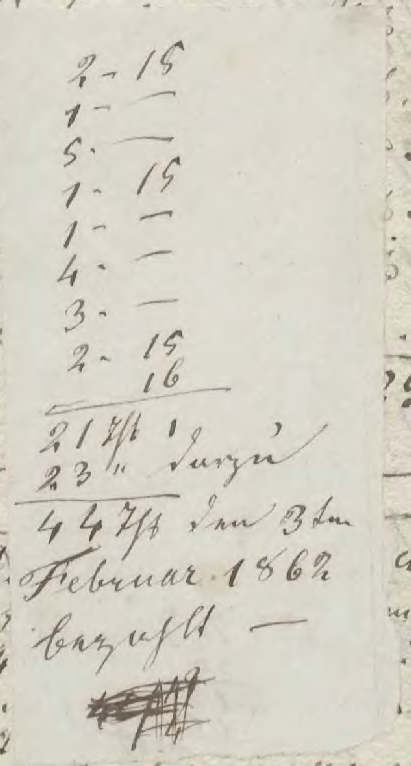 2 - 15
1 - —
5 - —
1 - 15
1 - —
4 - —
3 - —
2 - 15
16
21 Thl 1
23 " darzu
44 Thl den 3ten
Februar 1862
bezahlt —